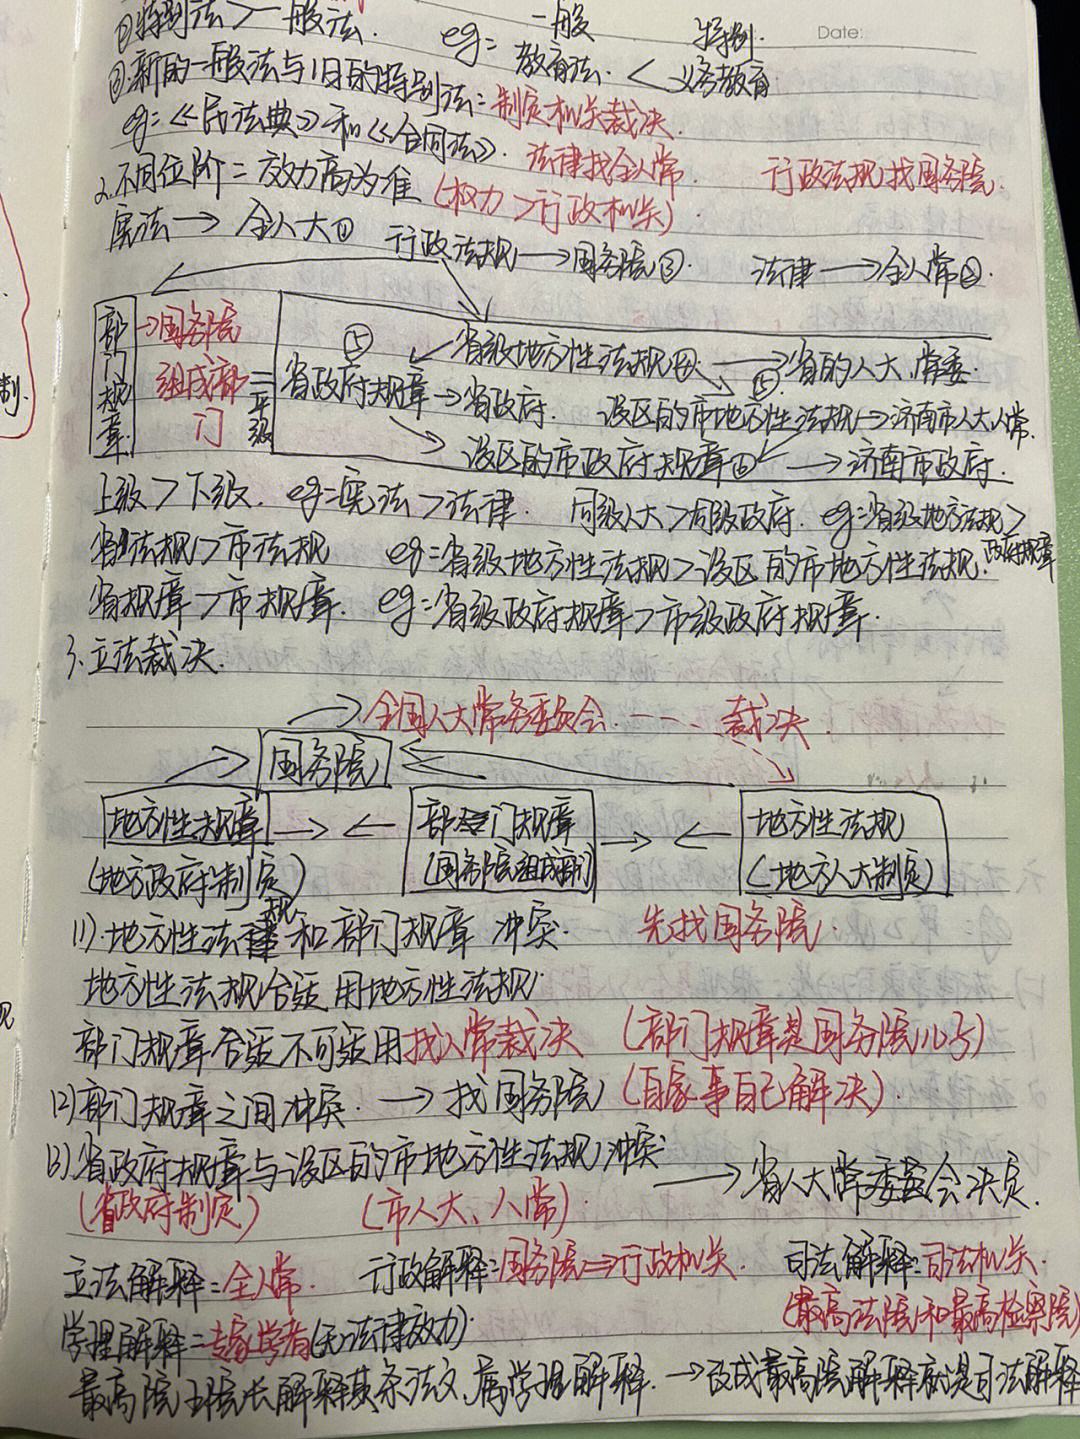 ②特别法>一般法. eg: 一般 特别.
Date:
教育法. < 义务教育
③新的一般法与旧的特别法:制定机关裁决.
eg:《民法典》和《合同法》. 法律找全人常. 行政法规找国务院.
2.不同位阶=效力高为准 (权力>行政机关)
宪法→全人大① 行政法规→国务院③. 法律→全人常②.
部门规章. →国务院组成部门 =平级
⑤ 省级地方性法规④ →省的人大、常委.
省政府规章→省政府. ⑤ 设区的市地方性法规→济南市人大人常.
设区的市政府规章⑥ →济南市政府.
上级>下级. eg:宪法>法律. 同级人大>同级政府. eg:省级地方法规>政府规章
省法规>市法规 eg:省级地方性法规>设区的市地方性法规.
省规章>市规章. eg:省级政府规章>市级政府规章.
3.立法裁决.
→全国人大常务委员会---裁决.
国务院
地方性规章 →← 部门规章 →← 地方性法规
(地方政府制定) (国务院组成部门) (地方人大制定)
(1).地方性法规和部门规章冲突. 先找国务院.
地方性法规合适用地方性法规
部门规章合适不可适用找人常裁决 (部门规章是国务院儿子)
(2)部门规章之间冲突.→找国务院(自家事自己解决).
(3)省政府规章与设区的市地方性法规冲突 →省人大常委会决定.
(省政府制定) (市人大、人常)
立法解释:全人常. 行政解释:国务院⇒行政机关. 司法解释:司法机关.
(最高法院和最高检察院)
学理解释=专家学者(无法律效力).
最高院王院长解释某条法文,属学理解释.→改成最高院解释就是司法解释